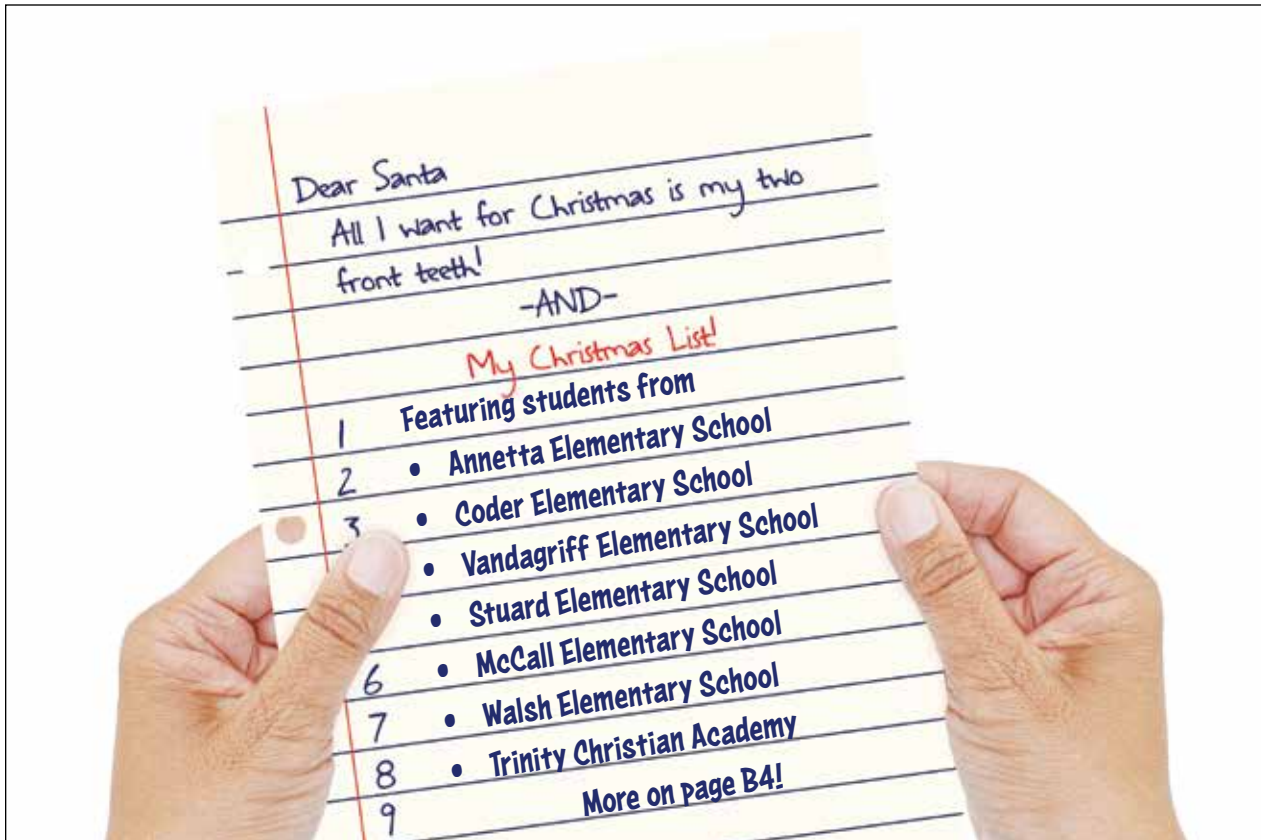 Dear Santa
All I want for Christmas is my two
front teeth!
-AND-
My Christmas List!
1 Featuring students from
2 • Annetta Elementary School
3 • Coder Elementary School
• Vandagriff Elementary School
• Stuard Elementary School
6 • McCall Elementary School
7 • Walsh Elementary School
8 • Trinity Christian Academy
9 More on page B4!